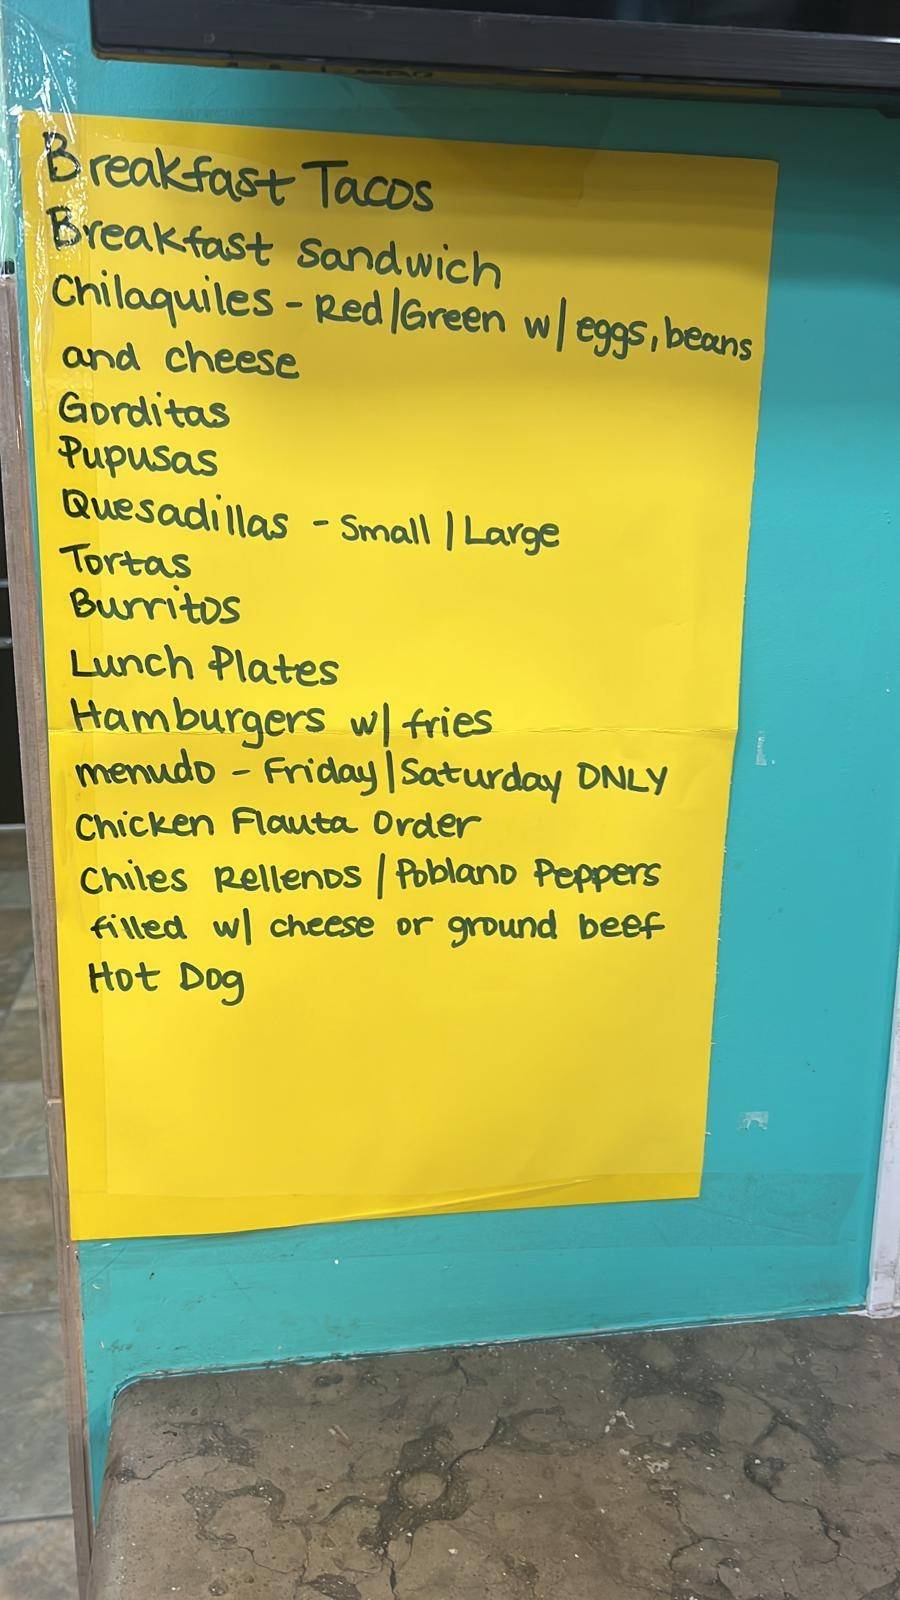 Breakfast Tacos
Breakfast Sandwich
Chilaquiles - Red/Green w/ eggs, beans
and cheese
Gorditas
Pupusas
Quesadillas - Small | Large
Tortas
Burritos
Lunch Plates
Hamburgers w/ fries
menudo - Friday | Saturday ONLY
Chicken Flauta Order
Chiles Rellenos / Poblano Peppers
filled w/ cheese or ground beef
Hot Dog